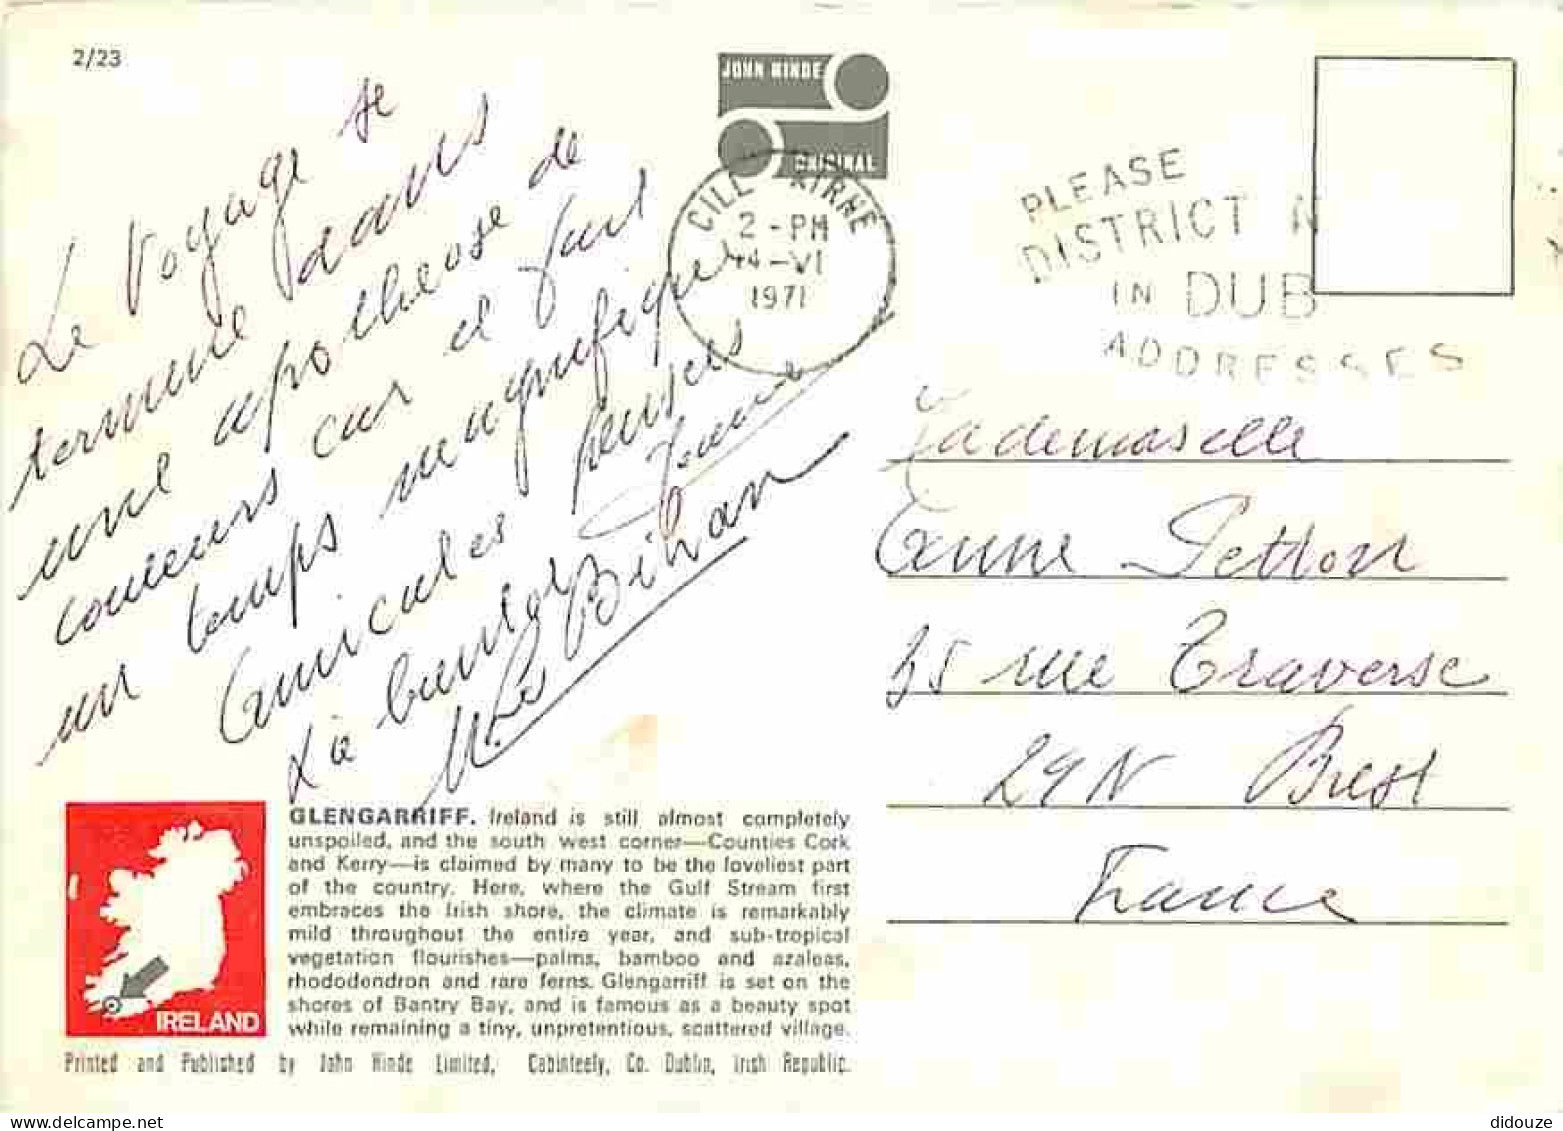 2/23
JOHN HINDE
ORIGINAL
CILL AIRNE
2-PM
14-VI
1971
PLEASE
DISTRICT N
IN DUB
ADDRESSES
Le voyage se
termine dans
une apothéose de
couleurs car il fait
un temps magnifique
Amicales pensées
La
M. Le Bihan
Mademoiselle
Anne Petton
35 rue Traverse
29N Brest
France
GLENGARRIFF. Ireland is still almost completely
unspoiled, and the south west corner—Counties Cork
and Kerry—is claimed by many to be the loveliest part
of the country. Here, where the Gulf Stream first
embraces the Irish shore, the climate is remarkably
mild throughout the entire year, and sub-tropical
vegetation flourishes—palms, bamboo and azaleas,
rhododendron and rare ferns. Glengarriff is set on the
shores of Bantry Bay, and is famous as a beauty spot
while remaining a tiny, unpretentious, scattered village.
IRELAND
Printed and Published by John Hinde Limited, Cabinteely, Co. Dublin, Irish Republic.
delcampe.net
didouze